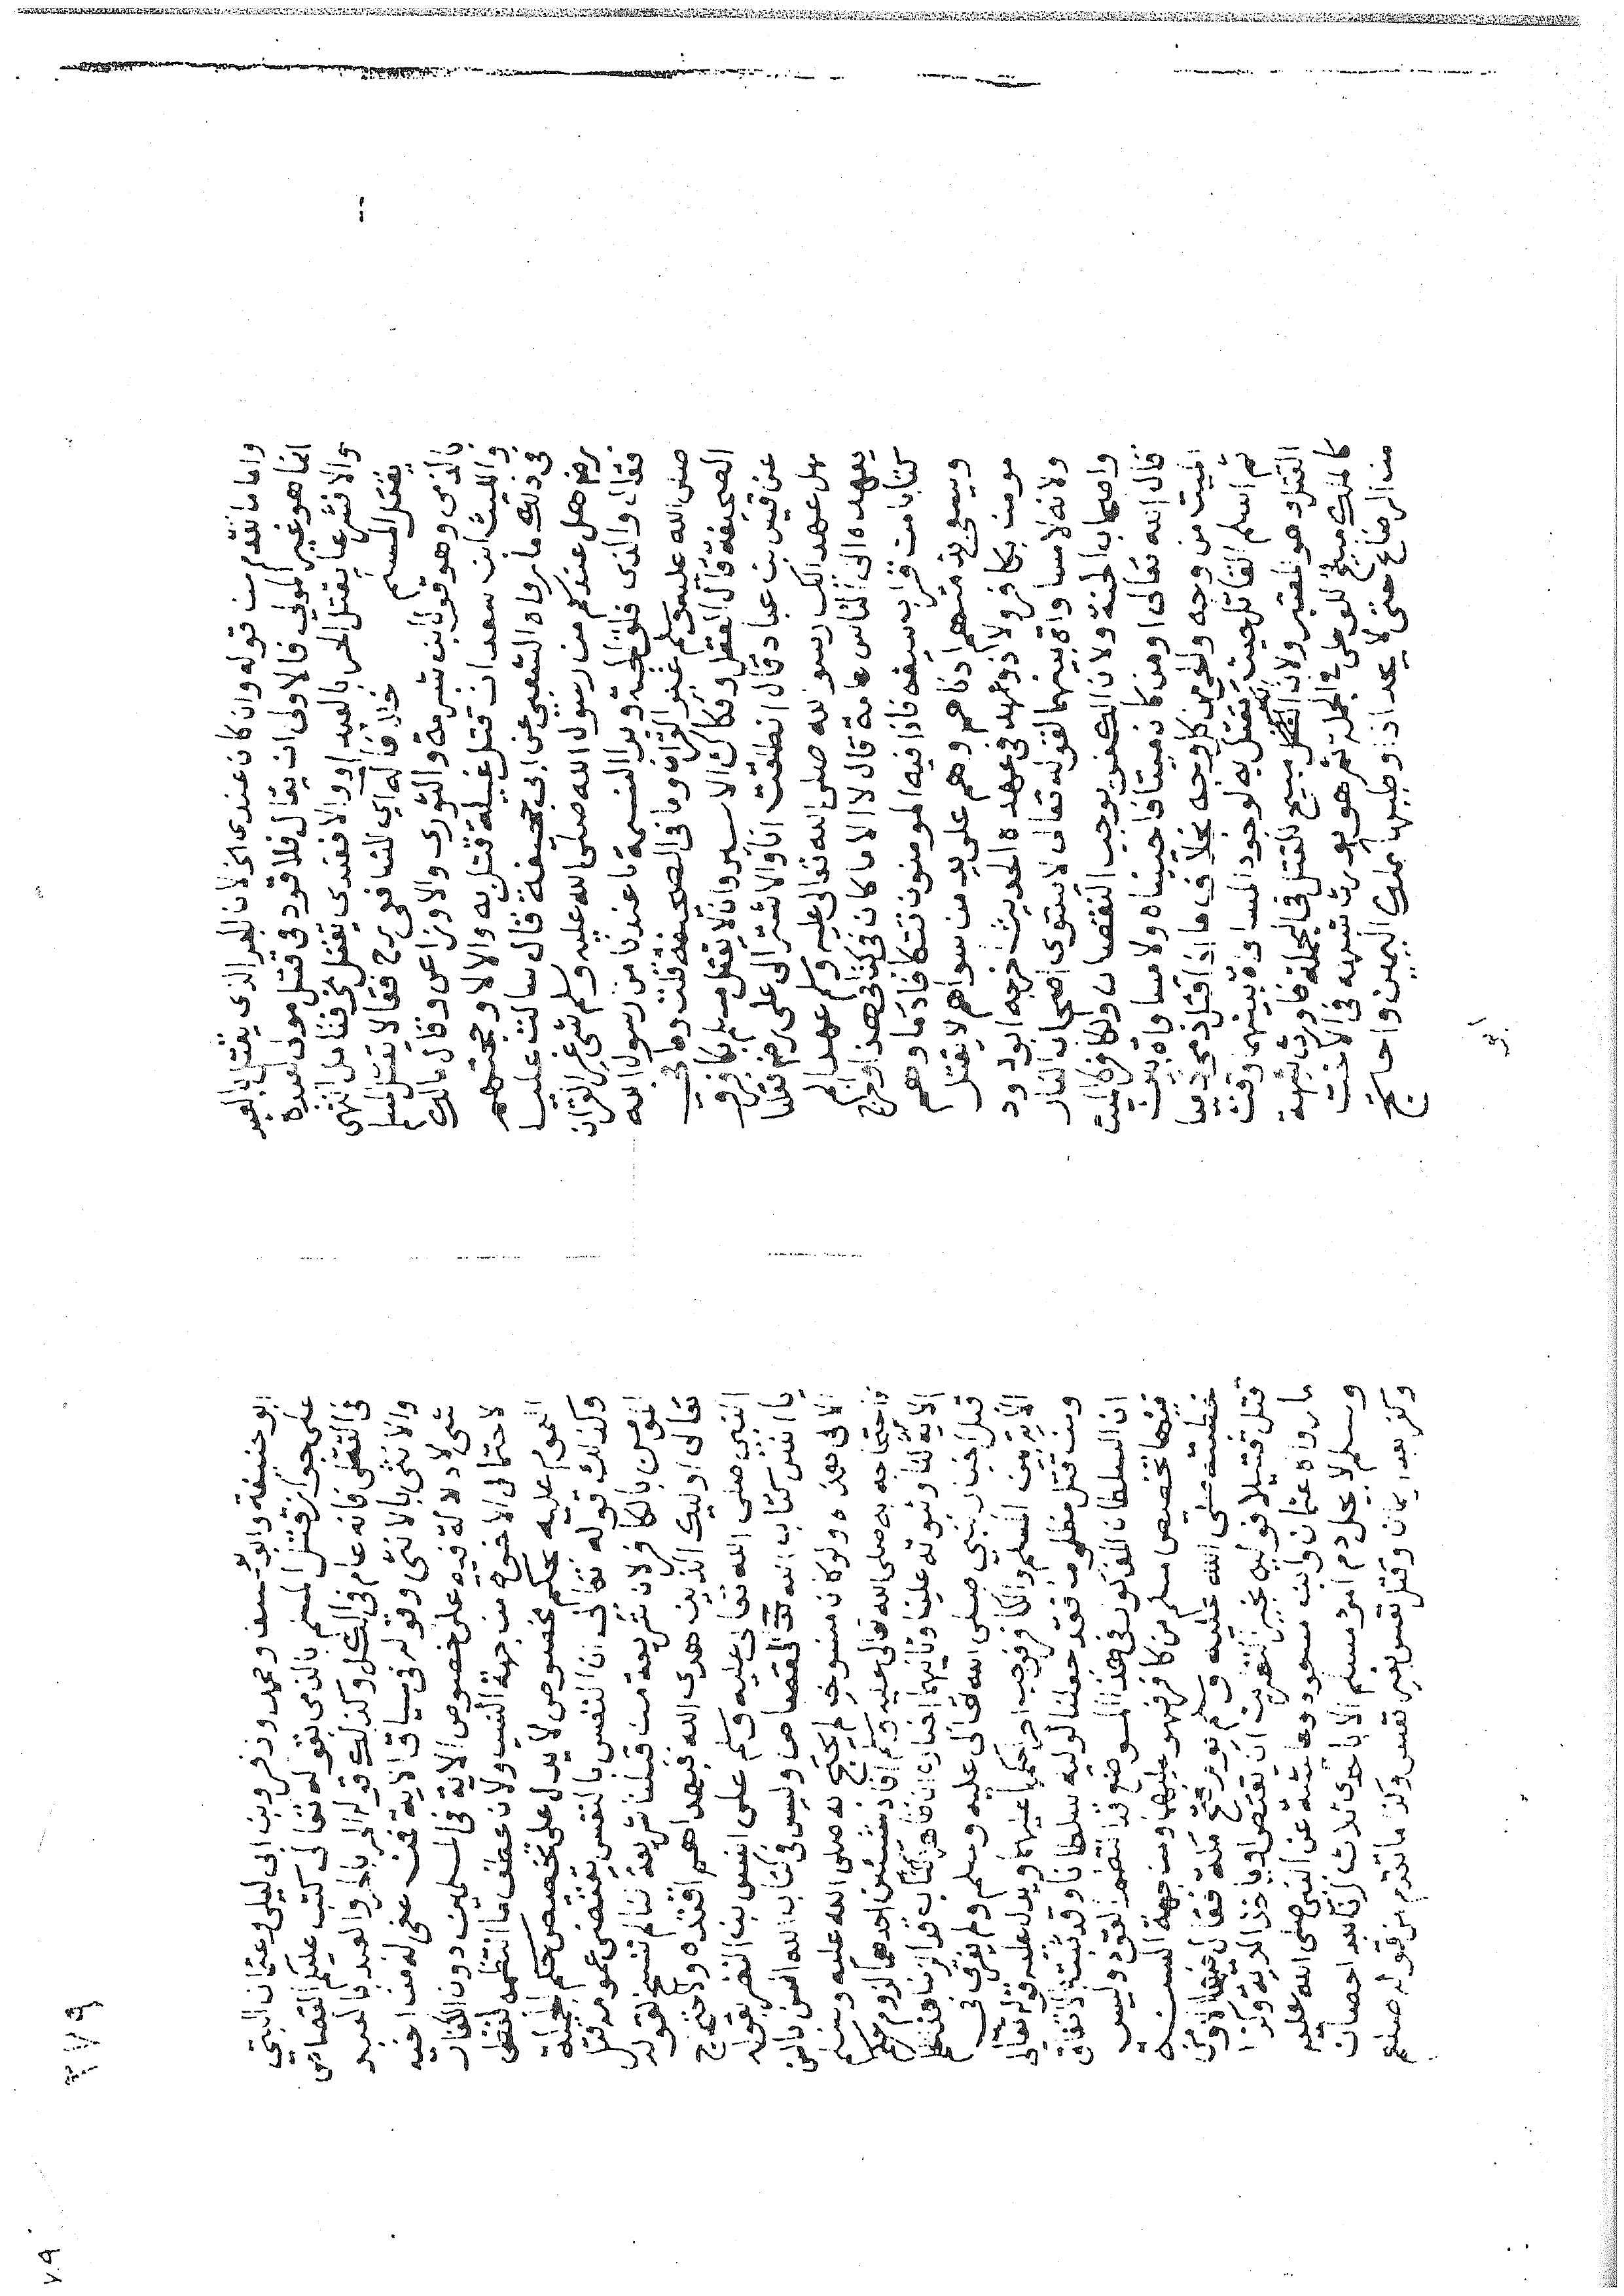 واما ما تقدم من قوله وان كان عندى الخ لان الحر الذى يقتل بالعبد
انما هو غير المولى فالاولى ان يقال فلا قود فى قتل مولى لعبده
يقتل الحر بالعبد
يقتل المسلم خلافا له اى للشافعى رح فقال لا يقتل المسلم
بالذمى وهو قول ابن شبرمة والثورى والاوزاعى وقال مالك
والليث ابن سعد ان قتل غيلة قتل به والا لا وحجتهم
فى ذلك ما رواه الشعبى عن ابى جحيفة قال سالت عليا
رضى هل عندكم من رسول الله صلى الله عليه وسلم شئ غير القرآن
فقال والذى فلق الحبة وبرا النسمة ما عندنا من رسول الله
صلى الله عليه وسلم غير القرآن وما فى الصحيفة قلت وما فى
الصحيفة قال العقل وفكاك الاسير وان لا يقتل مسلم بكافر و
عن قيس بن عباد قال انطلقت انا والاشتر الى على رضى فقلنا
هل عهد اليك رسول الله صلى الله تعالى عليه وسلم عهدا لم
يعهده الى الناس عامة قال لا الا ما كان فى كتابى هذا واخرج
كتابا من قراب سيفه فاذا فيه المومنون تتكافا دماوهم
ويسعى بذمتهم ادناهم وهم على يد من سواهم لا يقتل
مومن بكافر ولا ذو عهد فى عهده الحديث اخرجه ابو داود
ولانه لا مساواة بينهما لقوله تعالى لا يستوى اصحاب النار
واصحاب الجنة ولان الكفر يوجب النقصان والكافر كالميت
قال الله تعالى اومن كان ميتا فاحييناه ولا مساواة بين
الميت من وجه والحى من كل وجه بخلاف ما اذا قتل ذمى ذميا
ثم اسلم القاتل حيث يقتل به لوجود المساواة بينهما وقت
القتل وهو المعتبر ولان الكفر مبيح للقتل فى الجملة فاورث شبهة
كالملك مبيح للوطى فى الجملة ثم هو يورث شبهة فى الاخت
من الرضاع حتى لا يحد اذا وطيها بملك اليمين واحتج
ابو
ابو حنيفة وابو يوسف ومحمد وزفر وابن ابى ليلى وعثمان البتى
على جواز قتل المسلم بالذمى بقوله تعالى كتب عليكم القصاص
فى القتلى فانه عام فى الكل وكذلك قوله الحر بالحر والعبد بالعبد
والانثى بالانثى وقوله فى سياق الاية فمن عفى له من اخيه
شئ لا دلالة فيه على خصوص الاية فى المسلمين دون الكفار
لاحتمال الاخوة من جهة النسب ولان عطف ما انتظمه لفظ
العموم عليه بحكم مخصوص لا يدل على تخصيص حكم الجملة
وكذلك قوله تعالى ان النفس بالنفس يقتضى عمومه قتل
المومن بالكافر لان شريعة من قبلنا شريعة لنا لم تنسخ لقوله
تعالى اوليك الذين هدى الله فبهداهم اقتده ولاحتجاج
النبى صلى الله تعالى عليه وسلم على انس بن النضر بقوله
يا انس كتاب الله القصاص وليس فى كتاب الله السن بالسن
الا فى هذه ولو كان منسوخا لم يحتج به صلى الله عليه وسلم
فاحتجاجه به صلى الله تعالى عليه وسلم افاد شيئين احدهما لزوم حكم
الاية لنا وثبوته علينا وثانيهما اخباره ان ظاهر الكتاب قد الزمنا حكمها
قبل اخبار النبى صلى الله تعالى عليه وسلم ولم يفرق فى
الاية بين المسلم والكافر فوجب اجراء حكمها عليهما ويدل عليه قوله تعالى
ومن قتل مظلوما فقد جعلنا لوليه سلطانا وقد ثبت بالاتفاق
ان السلطان المذكور فى هذا الموضع قد انتظم القود وليس
فيها تخصيص مسلم من كافر فهو عليهما ومن جهة السنة
خطبته صلى الله عليه وسلم يوم فتح مكة فقال
قتل قتيلا فوليه بخير النظرين ان يقتص او ياخذ الدية وكذا
ما رواه عثمان وابن مسعود وعائشة عن النبى صلى الله عليه
وسلم لا يحل دم امرئ مسلم الا باحدى ثلاث زنا بعد احصان
وكفر بعد ايمان وقتل نفس بغير نفس وكذا ما تقدم من قوله صلعم